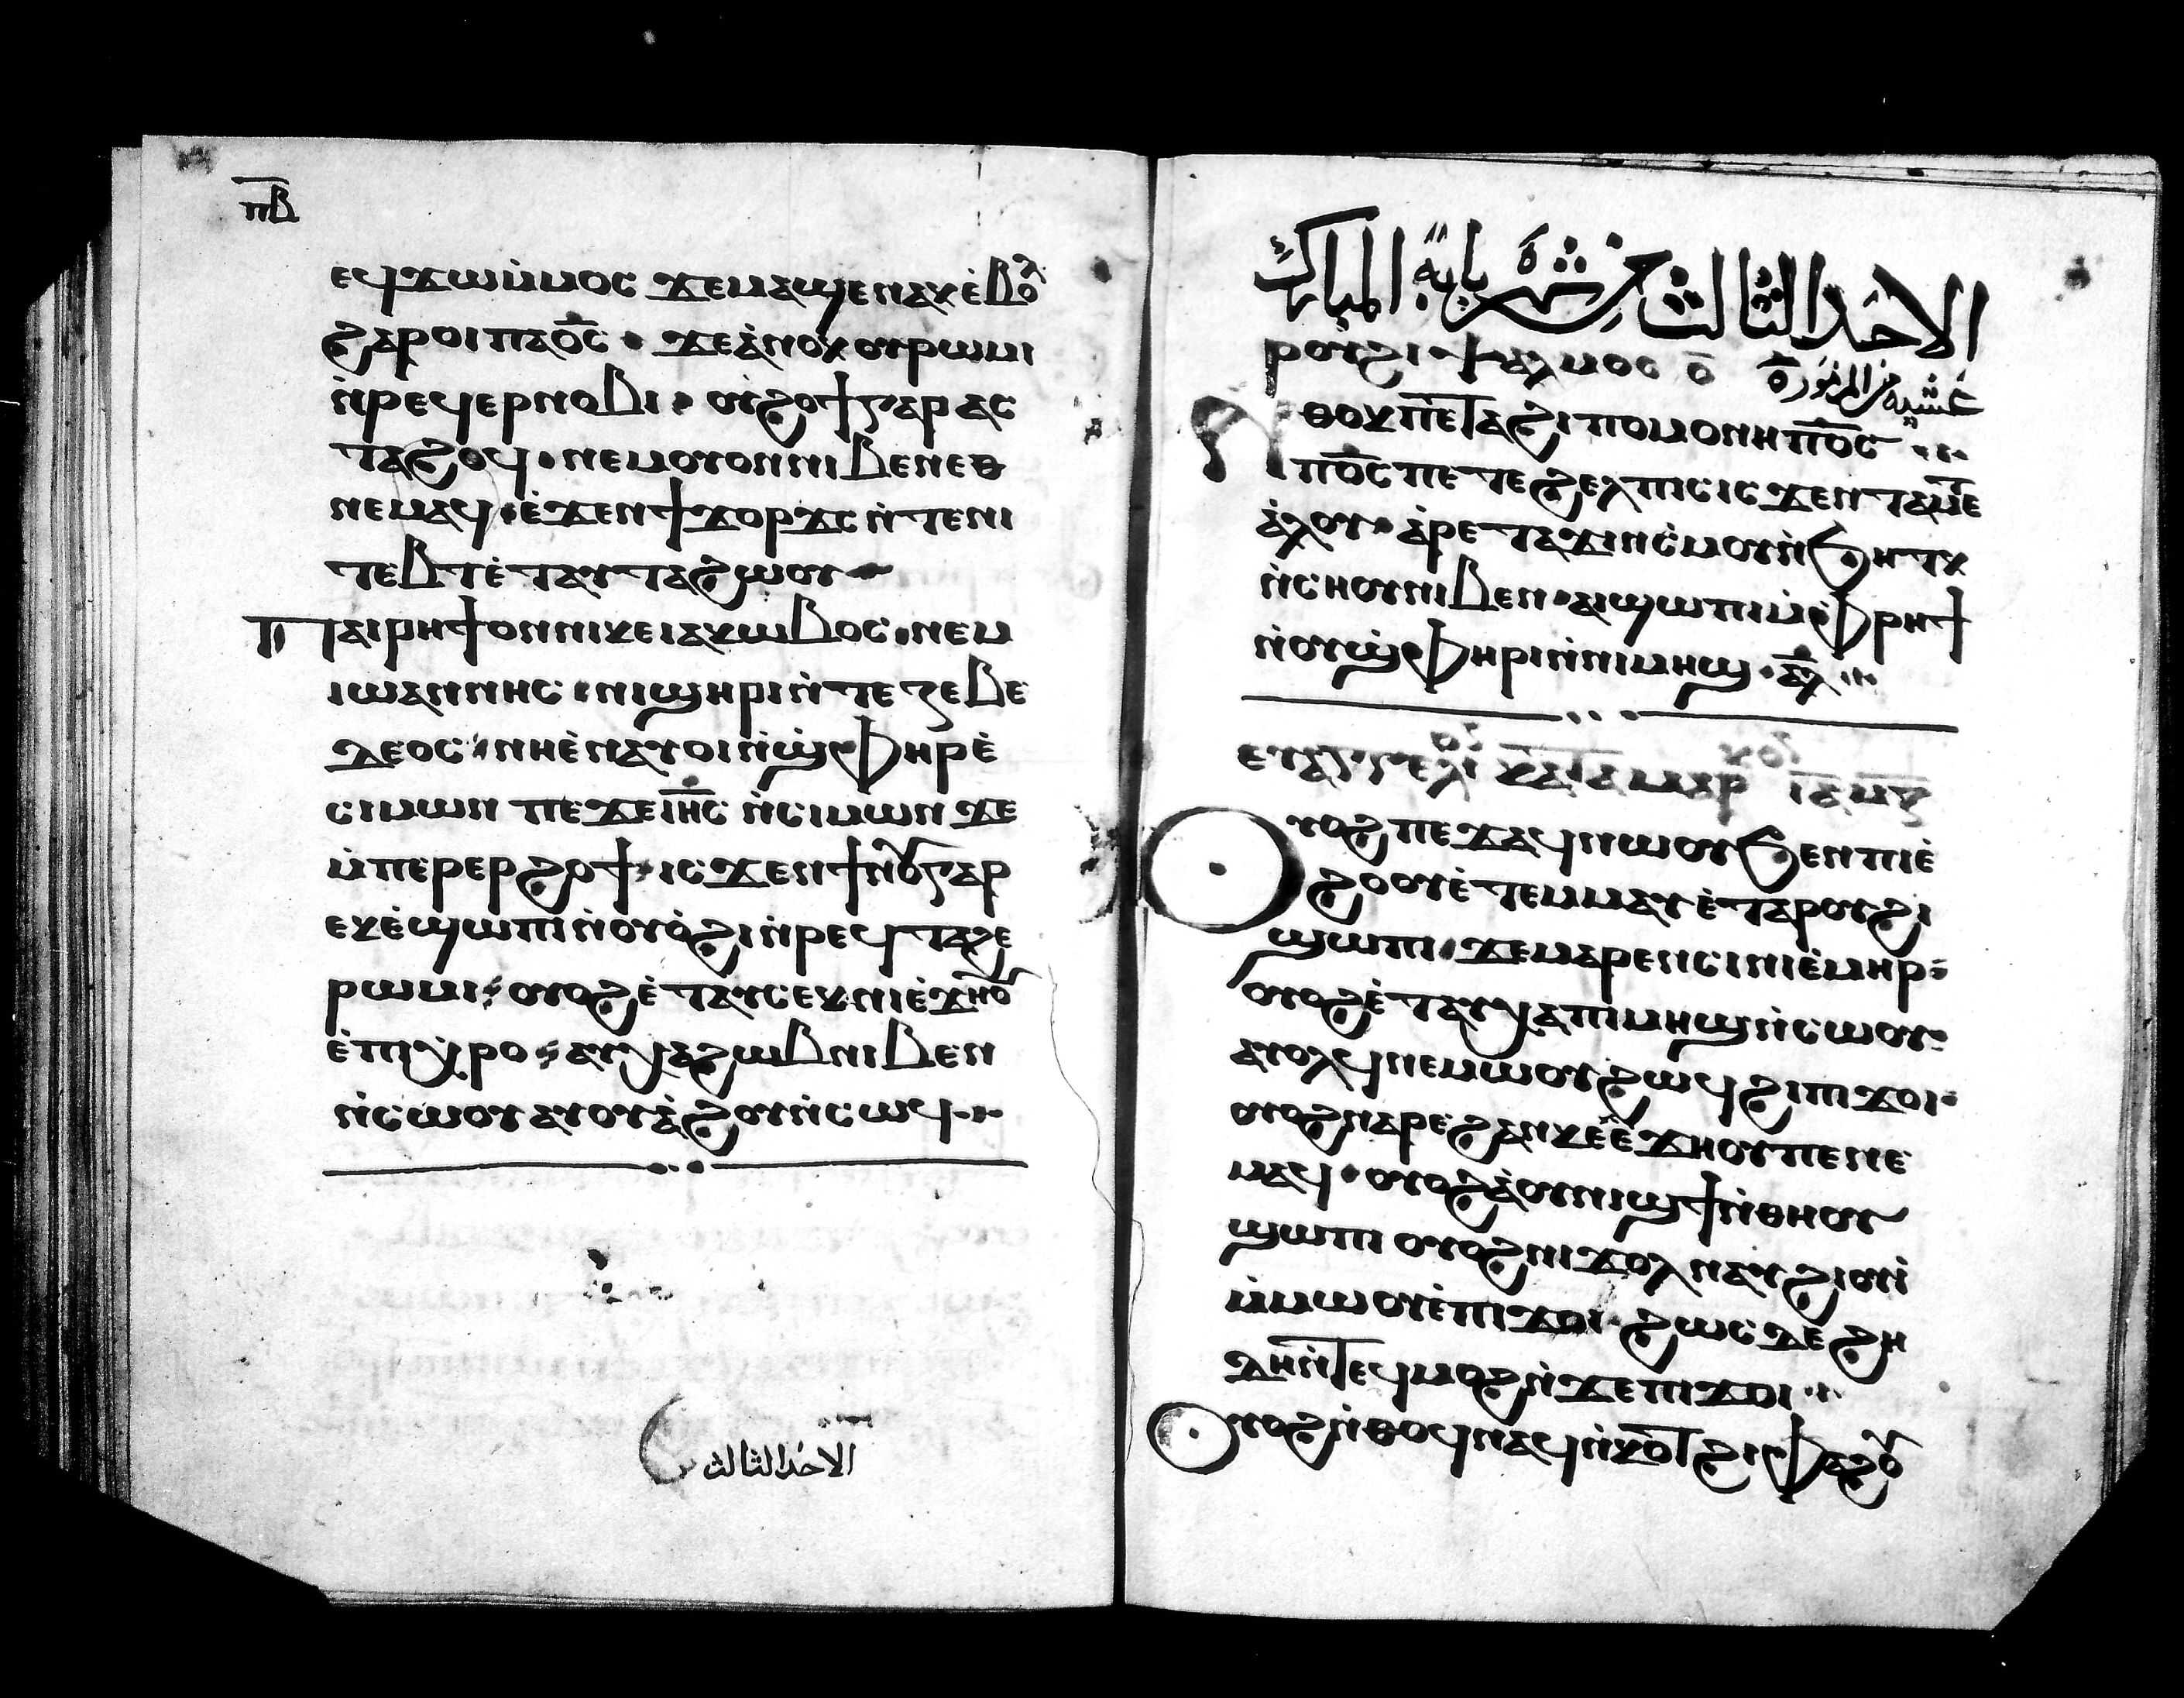 ⲡⲃ
ⲉϥϫⲱⲙ̇ⲙⲟⲥ ϫⲉⲙⲁϣⲉⲛⲁⲕⲉ̇ⲃⲟⲗ
ϩⲁⲣⲟⲓⲡⲁⲟ̅ⲥ̅ · ϫⲉⲁ̇ⲛⲟⲕⲟⲩⲣⲱⲙⲓ
ⲛ̇ⲣⲉϥⲉⲣⲛⲟⲃⲓ · ⲟⲩϩⲟϯⲅⲁⲣ ⲁⲥ
ⲧⲁϩⲟϥ · ⲛⲉⲙⲟⲩⲟⲛⲛⲓⲃⲉⲛⲉⲑ
ⲛⲉⲙⲁϥ · ⲉ̇ϫⲉⲛϯϫⲟⲣϫⲥ ⲛ̇ⲧⲉⲛⲓ
ⲧⲉⲃⲧⲉ̇ⲧⲁⲩⲧⲁϩⲱⲟⲩ
Ⲡⲁⲓⲣⲏϯⲟⲛⲛⲓⲕⲉⲓⲁⲕⲱⲃⲟⲥ · ⲛⲉⲙ
ⲓⲱⲁⲛⲛⲏⲥ · ⲛⲓϣⲏⲣⲓⲛ̇ⲧⲉ ⲍⲉⲃⲉ
ⲇⲉⲟⲥ · ⲛⲏⲉ̇ⲛⲁⲩⲟⲓⲛ̇ϣ̇ⲫⲏⲣⲉ̇
ⲥⲓⲙⲱⲛ ⲡⲉϫⲉⲓ̅ⲏ̅ⲥ̅ ⲛ̇ⲥⲓⲙⲱⲛ ϫⲉ
ⲙ̇ⲡⲉⲣⲉⲣϩⲟϯ · ⲓⲥϫⲉⲛϯⲛⲟⲩⲅⲁⲣ
ⲉⲕⲉ̇ϣⲱⲡⲓⲛ̇ⲟⲩⲟ̇ϩⲓⲛ̇ⲣⲉϥⲧⲁϩⲉ
ⲣⲱⲙⲓ · ⲟⲩⲟϩⲉ̇ⲧⲁⲩⲥⲉⲕⲛⲓⲉ̇ϫⲏⲟⲩ
ⲉ̇ⲡⲓⲭ̇ⲣⲟ · ⲁⲩⲭⲁϩⲱⲃⲛⲓⲃⲉⲛ
ⲛ̇ⲥⲱⲟⲩ ⲁⲩⲟⲩⲁ̇ϩⲟⲩⲛ̇ⲥⲱϥ
الاحد الثالث
الاحد الثالث من شهر بابه المبارك
ⲣⲟⲩϩⲓ ⲯⲁⲗⲙⲟⲥ ⲟ̅ عشيه من المزمور ٧٠
Ⲛⲑⲟⲕⲡⲉⲧⲁϩⲓⲡⲟⲙⲟⲛⲏⲡⲟ̅ⲥ̅
ⲡⲟ̅ⲥ̅ ⲡⲉ ⲧⲉϩⲉⲗⲡⲓⲥ ⲓⲥϫⲉⲛ ⲧⲁⲙⲉ
ⲁ̇ⲗⲟⲩ · ⲁ̇ⲣⲉⲧⲁϫⲓⲛⲥ̇ⲙⲟⲩⲛ̇ϧⲏⲧⲕ
ⲛ̇ⲥⲏⲟⲩⲛⲓⲃⲉⲛ · ⲁⲓϣⲱⲡⲓⲙ̇ⲫⲣⲏϯ
ⲛ̇ⲟⲩϣ̇ⲫⲏⲣⲓⲛ̇ⲛⲓⲙⲏϣ · ⲁ̅ⲗ̅
ⲉⲩⲁⲅⲅⲉⲗⲓⲟⲛ ⲕⲁⲧⲁⲙⲁⲣⲕⲟⲛ
Ⲟⲩⲟϩⲡⲉϫⲁϥⲛⲱⲟⲩϧⲉⲛⲡⲓⲉ̇
ϩⲟⲟⲩⲉ̇ⲧⲉⲙⲙⲁⲩ ⲉ̇ⲧⲁⲣⲟⲩϩⲓ
ϣⲱⲡⲓ · ϫⲉⲙⲁⲣⲉⲛⲥⲓⲛⲓⲉ̇ⲙⲏⲣ
ⲟⲩⲟϩⲉ̇ⲧⲁⲩⲭⲁⲡⲓⲙⲏϣⲛ̇ⲥⲱⲟⲩ
ⲁⲩⲟⲗϥⲛⲉⲙⲱⲟⲩϩⲱϥϩⲓⲡⲓϫⲟⲓ
ⲟⲩⲟϩⲛⲁⲣⲉϩⲁⲛⲕⲉⲉ̇ϫⲏⲟⲩⲡⲉⲛⲉ
ⲙⲁϥ · ⲟⲩⲟϩⲁ̇ⲟⲩⲛⲓϣϯⲛ̇ⲑⲏⲟⲩ
ϣⲱⲡⲓ ⲟⲩⲟϩⲛⲓϫⲟⲗ ⲛⲁⲩϩⲓⲟⲩⲓ̇
ⲙ̇ⲙⲱⲟⲩⲉ̇ⲡⲓϫⲟⲓ · ϩⲱⲥⲇⲉ ϩⲏ
ⲇⲏⲛ̇ⲧⲉϥⲙⲟϩⲛ̇ϫⲉⲡⲓϫⲟⲓ
Ⲟⲩⲟϩⲛ̇ⲑⲟϥⲛⲁϥⲛ̇ⲕⲟⲧϩⲓⲫⲁϩⲟⲩ